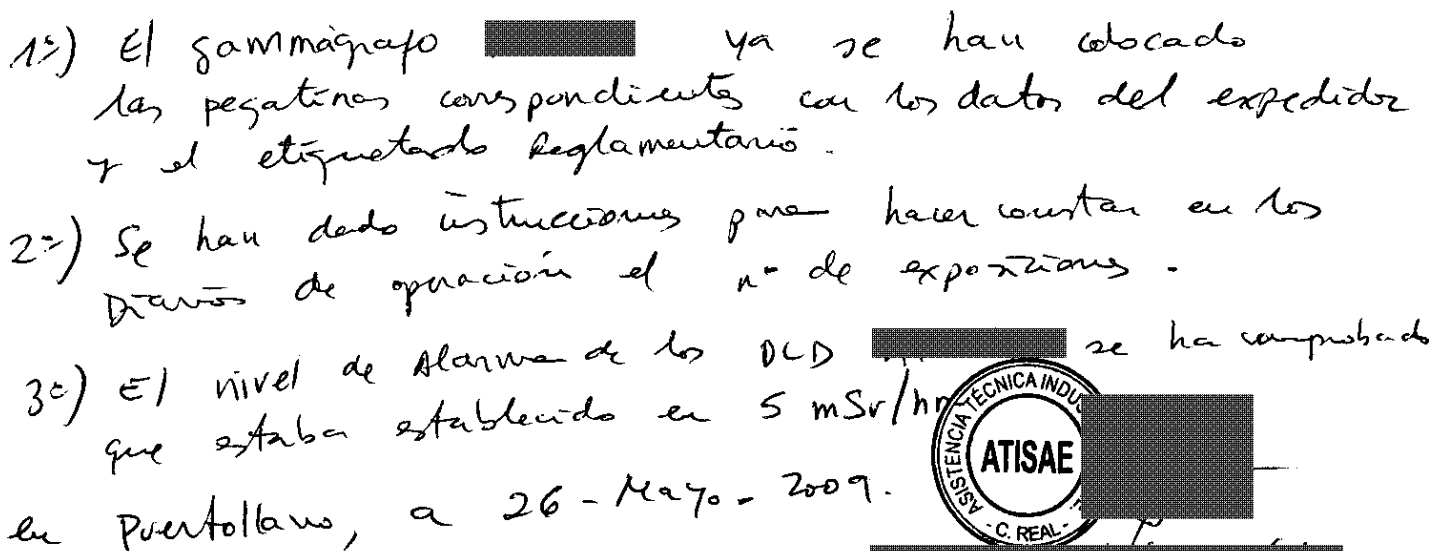 1º) El gammágrafo ya se han colocado
las pegatinas correspondientes con los datos del expedidor
y el etiquetado Reglamentario.
2º) Se han dado instrucciones para hacer constar en los
Diarios de operación el nº de exposiciones.
3º) El nivel de Alarma de los DLD se ha comprobado
que estaba establecido en 5 mSr/hr
ASISTENCIA TÉCNICA INDUS
ATISAE
- C. REAL -
en Puertollano, a 26 - Mayo - 2009.